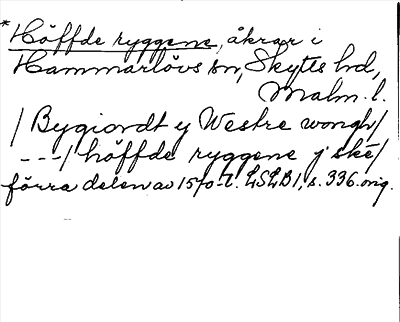 *Höffde ryggene, åkrar i
Hammarlövs sn, Skytts hd,
Malm. l.
/ Bygiordt y Westre wongh /
---/ höffde ryggene j ske /
förra delen av 1570-t. LSLB 1, s. 336. orig.